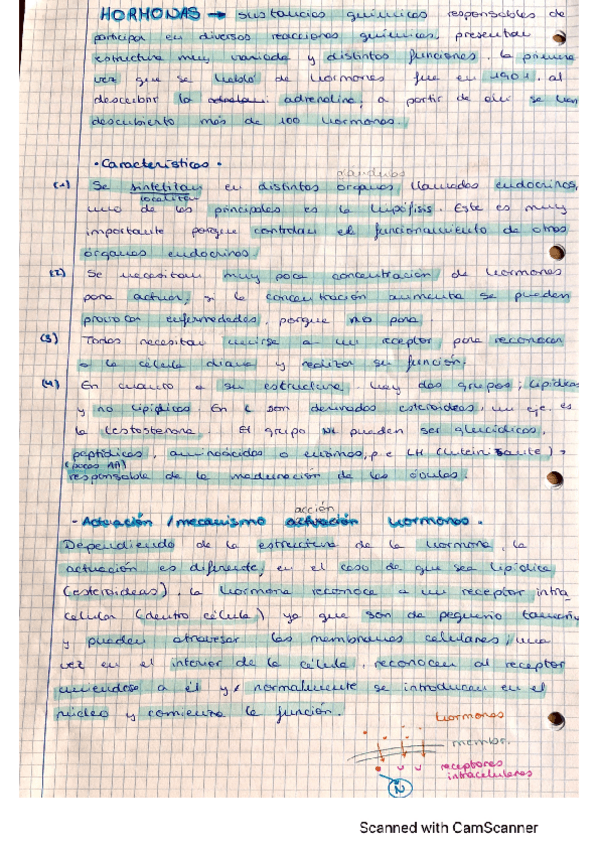 HORMONAS → sustancias químicas responsables de
participar en diversas reacciones químicas, presentan
estructura muy variada y distintas funciones. La primera
vez que se habló de hormonas fue en 1901, al
descubrir la adrenalina, a partir de ahí se han
descubierto más de 100 hormonas.
· Características ·
glándulas
(1) Se sintetizan en distintos órganos llamados endocrinos,
localizan
uno de los principales es la hipófisis. Este es muy
importante porque controlan el funcionamiento de otros
órganos endocrinos.
(2) Se necesitan muy poca concentración de hormonas
para actuar, si la concentración aumenta se pueden
provocar enfermedades, porque no para
(3) Todas necesitan unirse a un receptor para reconocer
a la célula diana y realizar su función.
(4) En cuanto a su estructura hay dos grupos; lipídicas
y no lipídicas. En L son derivados esteroideas, un eje. es
la testosterona. El grupo NL pueden ser glucídicas,
peptídicas, aminoácidos o enzimas, p.e LH (luteinizante) >
(pocos AA)
responsable de la maduración de los óvulos.
acción
- Actuación / mecanismo activación hormonas.
Dependiendo de la estructura de la hormona, la
actuación es diferente, en el caso de que sea lipídica
(esteroideas), la hormona reconoce a un receptor intra
celular (dentro célula) ya que son de pequeño tamaño
y pueden atravesar las membranas celulares, una
vez en el interior de la célula, reconocen al receptor
uniendose a él y, normalmente se introducen en el
núcleo y comienza la función.
hormonas
membr.
receptores
intracelulares
N
Scanned with CamScanner